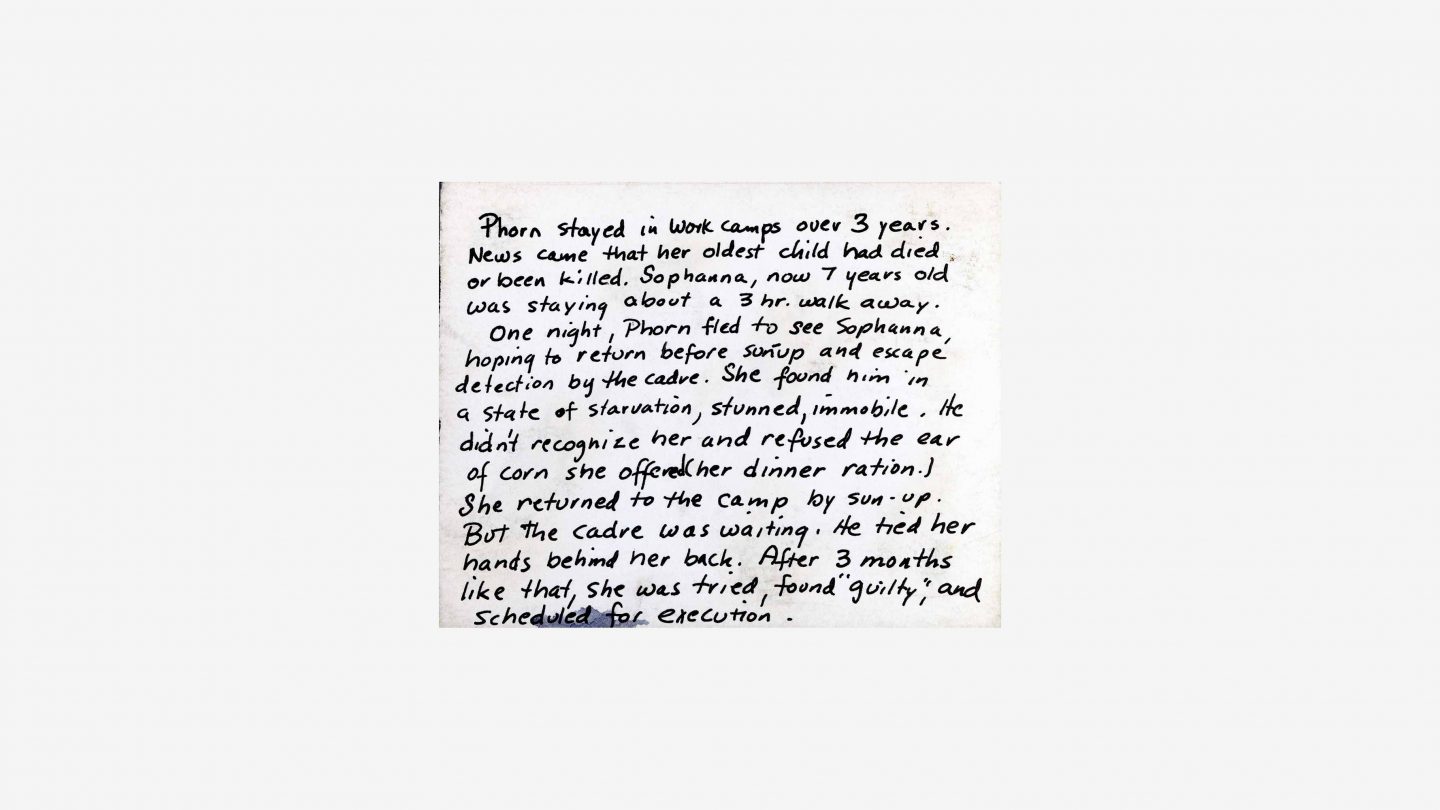 Phorn stayed in work camps over 3 years.
News came that her oldest child had died
or been killed. Sophanna, now 7 years old
was staying about a 3 hr. walk away.
One night, Phorn fled to see Sophanna,
hoping to return before sunup and escape
detection by the cadre. She found him in
a state of starvation, stunned, immobile. He
didn't recognize her and refused the ear
of corn she offered (her dinner ration.)
She returned to the camp by sun-up.
But the cadre was waiting. He tied her
hands behind her back. After 3 months
like that, she was tried, found "guilty", and
scheduled for execution.